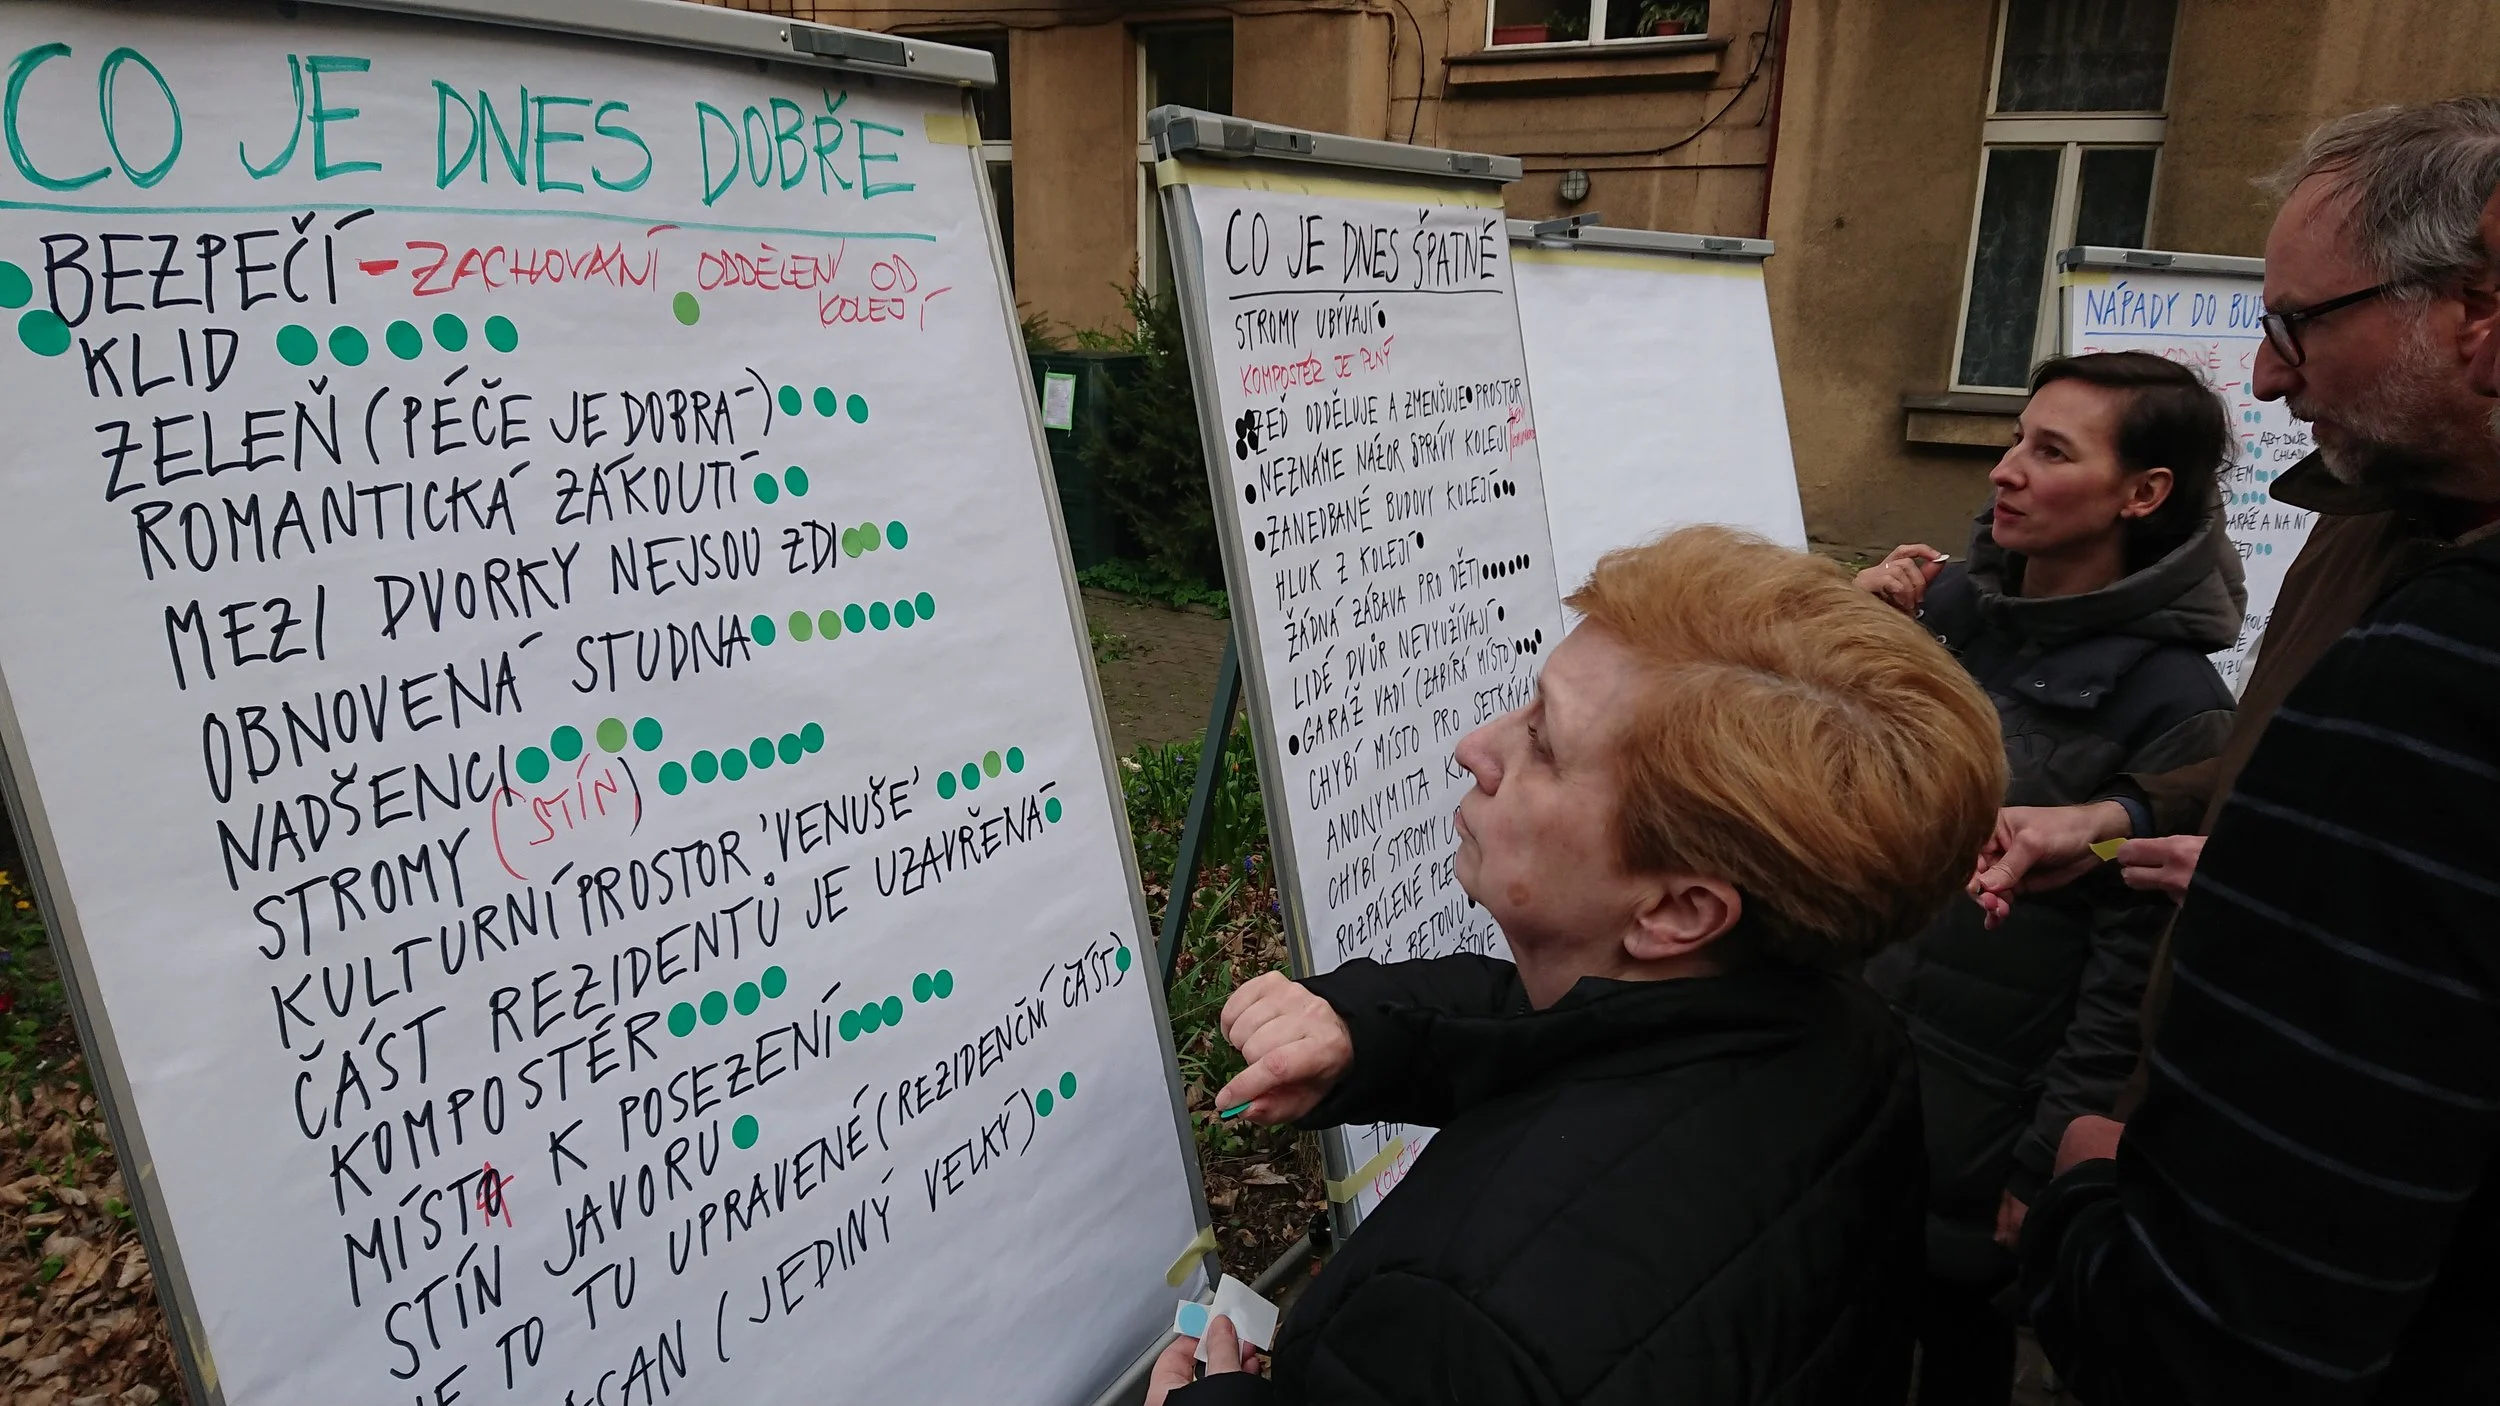 CO JE DNES DOBŘE
BEZPEČÍ - ZACHOVANÍ ODDĚLENÍ OD
KOLEJÍ
KLID
ZELEŇ (PÉČE JE DOBRÁ)
ROMANTICKÁ ZÁKOUTÍ
MEZI DVORKY NEJSOU ZDI
OBNOVENÁ STUDNA
NADŠENCI
STROMY (STÍN)
KULTURNÍ PROSTOR 'VENUŠE'
ČÁST REZIDENTŮ JE UZAVŘENÁ
KOMPOSTÉR
MÍSTA K POSEZENÍ
STÍN JAVORU
JE TO TU UPRAVENÉ (REZIDENČNÍ ČÁST)
(JEDINÝ VELKÝ)
CO JE DNES ŠPATNĚ
STROMY UBÝVAJÍ
KOMPOSTÉR JE PLNÝ
ZEĎ ODDĚLUJE A ZMENŠUJE PROSTOR
NEZNÁME NÁZOR SPRÁVY KOLEJÍ
ZANEDBANÉ BUDOVY KOLEJÍ
HLUK Z KOLEJÍ
ŽÁDNÁ ZÁBAVA PRO DĚTI
LIDÉ DVŮR NEVYUŽÍVAJÍ
GARÁŽ VADÍ (ZABÍRÁ MÍSTO)
CHYBÍ MÍSTO PRO
ANONYMITA
CHYBÍ STROMY
ROZPÁLENÉ
BETONU
KOLEJE
NÁPADY DO
ABY DVŮR
A NA NÍ